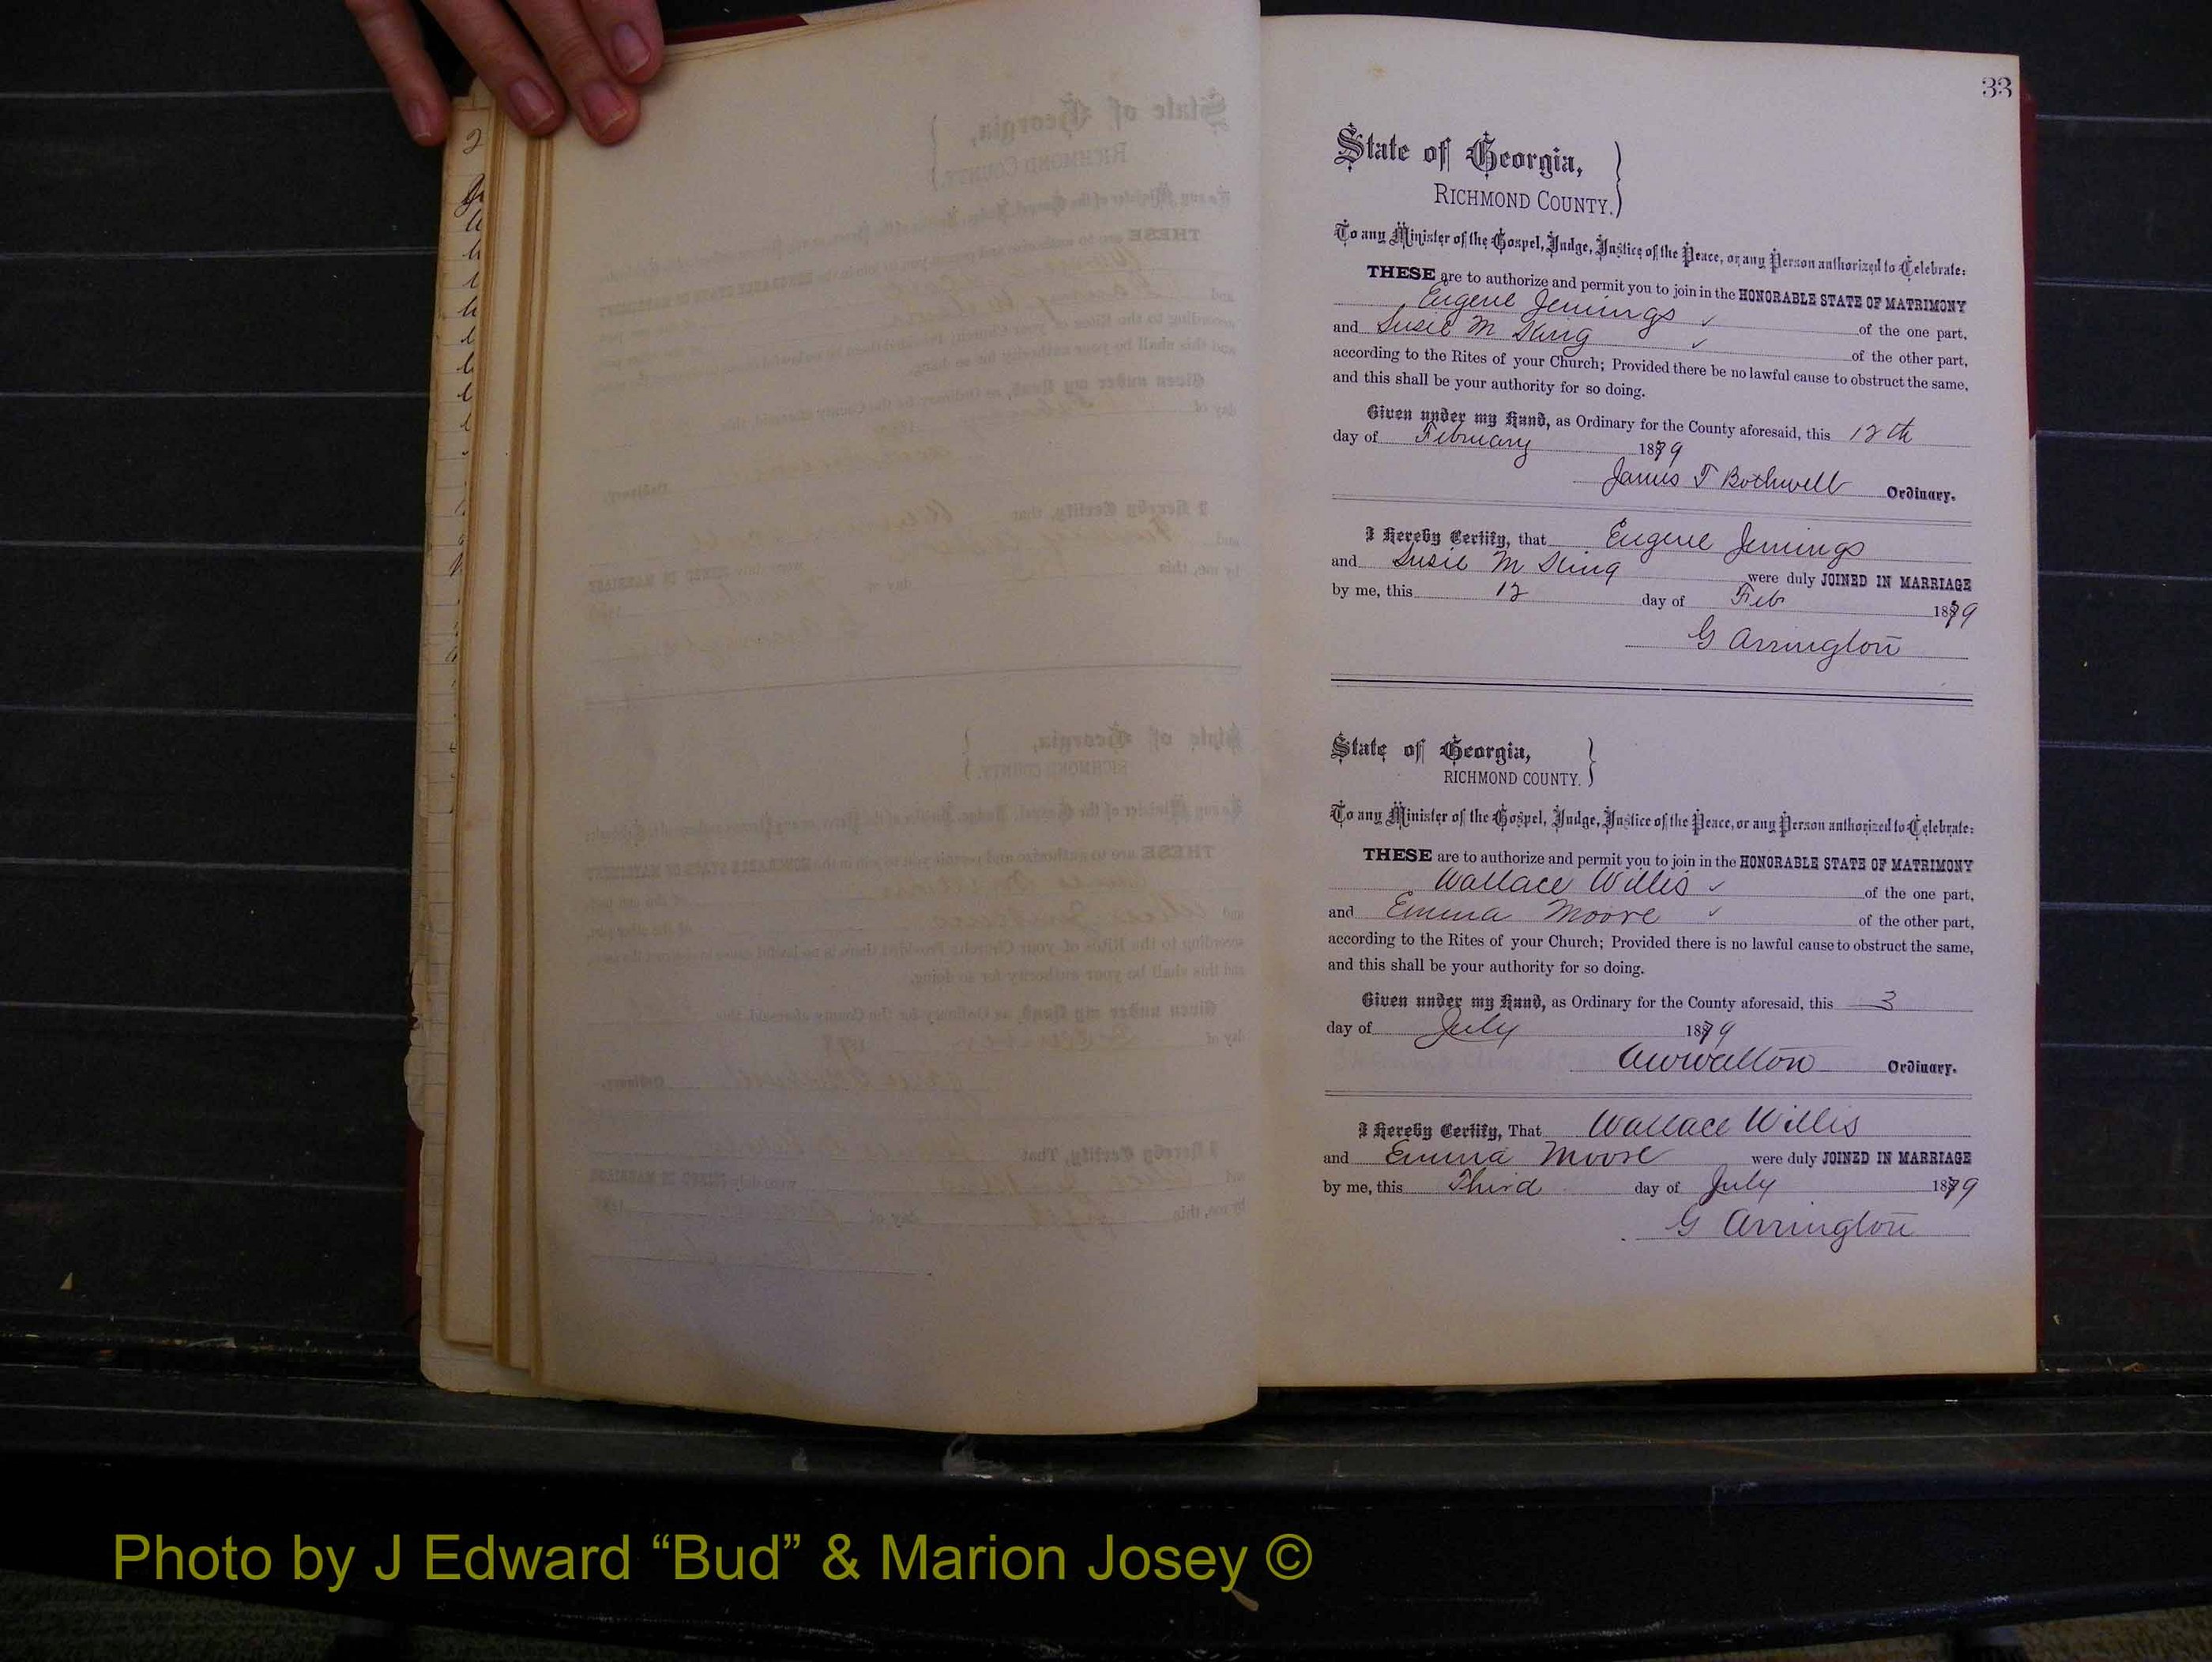 33
State of Georgia,
RICHMOND COUNTY.
To any Minister of the Gospel, Judge, Justice of the Peace, or any Person authorized to Celebrate:
THESE are to authorize and permit you to join in the HONORABLE STATE OF MATRIMONY
Eugene Jennings ✓ of the one part,
and Susie M ✓ of the other part,
according to the Rites of your Church; Provided there be no lawful cause to obstruct the same,
and this shall be your authority for so doing.
Given under my Hand, as Ordinary for the County aforesaid, this 12th
day of February 1879
James T Bothwell Ordinary.
I Hereby Certify, that Eugene Jennings
and Susie M were duly JOINED IN MARRIAGE
by me, this 12 day of Feb 1879
G Arrington
State of Georgia,
RICHMOND COUNTY.
To any Minister of the Gospel, Judge, Justice of the Peace, or any Person authorized to Celebrate:
THESE are to authorize and permit you to join in the HONORABLE STATE OF MATRIMONY
Wallace Willis ✓ of the one part,
and Emma Moore ✓ of the other part,
according to the Rites of your Church; Provided there is no lawful cause to obstruct the same,
and this shall be your authority for so doing.
Given under my Hand, as Ordinary for the County aforesaid, this 3
day of July 1879
Walton Ordinary.
I Hereby Certify, That Wallace Willis
and Emma Moore were duly JOINED IN MARRIAGE
by me, this Third day of July 1879
G Arrington
Photo by J Edward “Bud” & Marion Josey ©